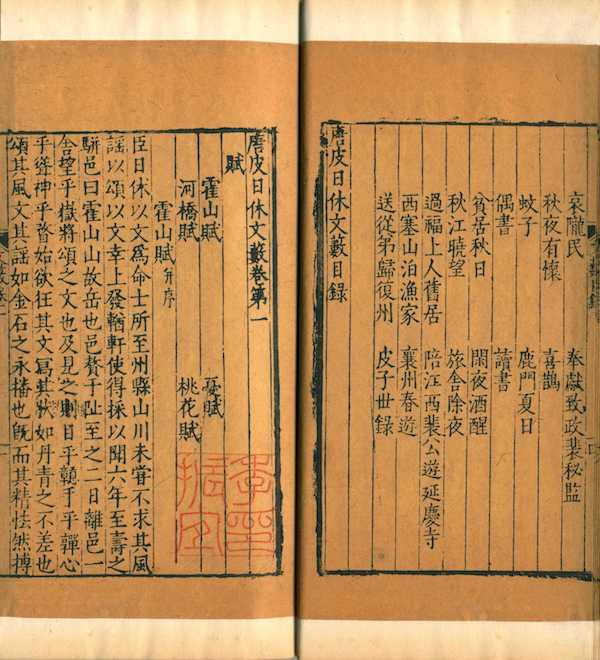 哀隴民　奉獻致政裴秘監
秋夜有懷　喜鵲
蚊子　鹿門夏日
偶書　讀書
貧居秋日　閑夜酒醒
秋江曉望　旅舍除夜
過福上人舊居　陪江西裴公遊延慶寺
西塞山泊漁家　襄州春遊
送從弟歸復州　皮子世録
唐皮日休文藪目録
唐皮日休文藪卷第一
賦
霍山賦　憂賦
河橋賦　桃花賦
霍山賦并序
臣日休以文爲命士所至州縣山川未嘗不求其風
謡以頌以文幸上發輶軒使得採以聞六年至壽之
駢邑曰霍山山故岳也邑贅于趾至之二日離邑一
舍望乎嶽將頌之文也及見之則目乎顛于乎殫心
乎聳神乎瞀始欲狂其文寫其狀如丹青之不差也
頌其風文其謡如金石之永播也旣而其精怯然搏